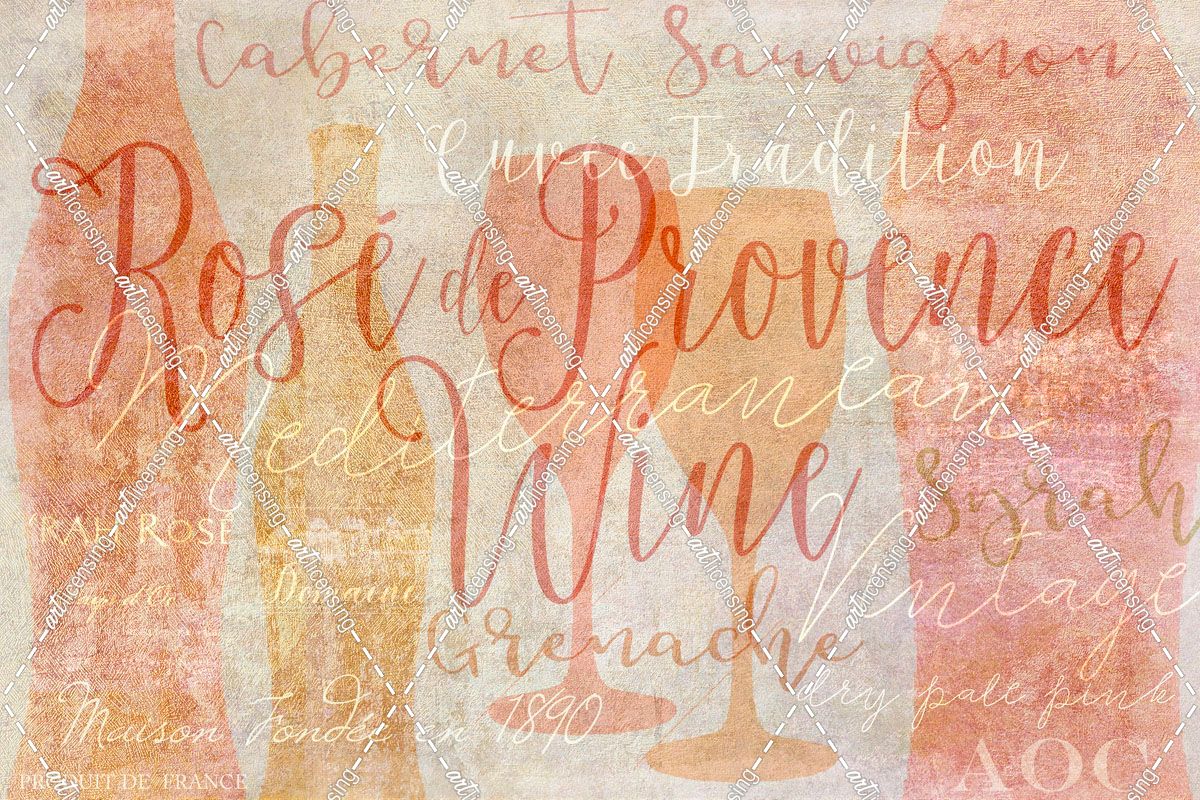 Cabernet Sauvignon
Cuvée Tradition
Rosé de Provence
Mediterranean
Wine
Syrah
YRAH ROSÉ
Vintage
Domaine
Grenache
dry pale pink
Maison Fondée en 1890
AOC
PRODUIT DE FRANCE
artlicensing